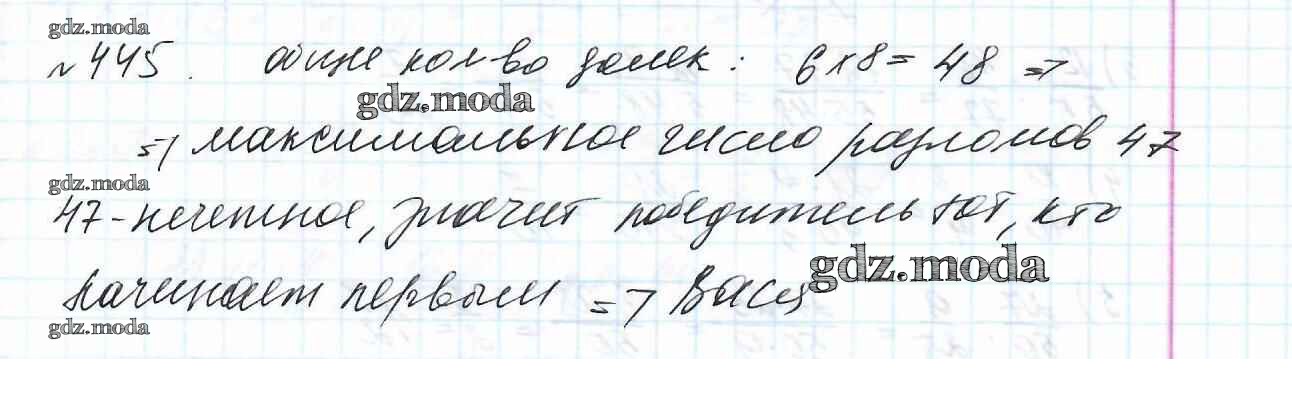 gdz.moda
№445. общие кол-во долек: 6x8=48 =>
gdz.moda
=> максимальное число разломов 47
gdz.moda
47-нечетное, значит победитель тот, кто
gdz.moda
начинает первым => Вася
gdz.moda